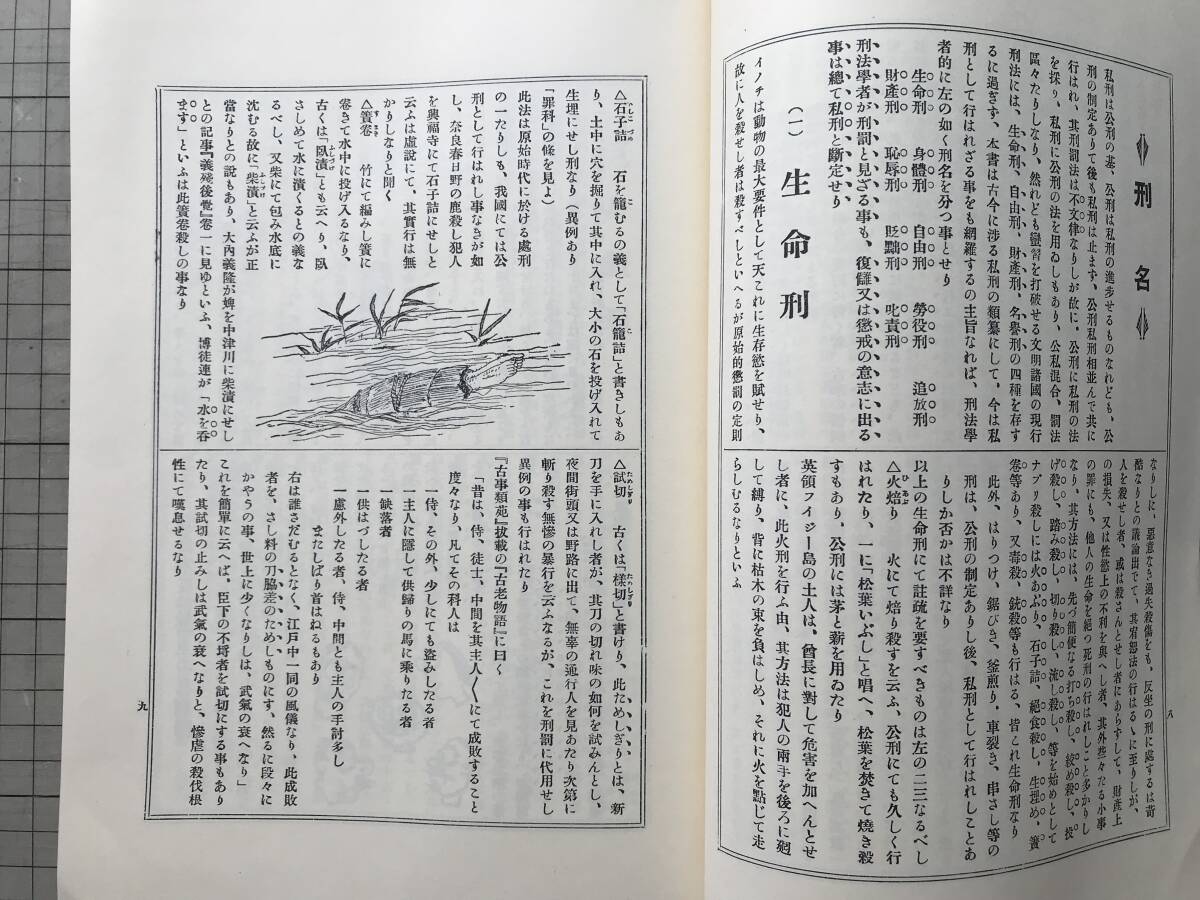 刑名
私刑は公刑の基、公刑は私刑の進歩せるものなれども、公
刑の制定ありて後も私刑は止まず、公刑私刑相並んで共に
行はれ、其刑罰法は不文律なりしが故に、公刑に私刑の法
を採り、私刑に公刑の法を用ゐしもあり、公私混合、罰法
區々たりしなり、然れども蠻習を打破せる文明諸國の現行
刑法には、生命刑、自由刑、財產刑、名譽刑の四種を存す
るに過ぎず、本書は古今に涉る私刑の類纂にして、今は私
刑として行はれざる事をも網羅するの主旨なれば、刑法學
者的に左の如く刑名を分つ事とせり
生命刑 身體刑 自由刑 勞役刑 追放刑
財產刑 恥辱刑 貶黜刑 叱責刑
刑法學者が刑罰と見ざる事も、復讎又は懲戒の意志に出る
事は總て私刑と斷定せり
(一) 生命刑
イノチは動物の最大要件として天これに生存慾を賦せり、
故に人を殺せし者は殺すべしといへるが原始的懲罰の定則
なりしに、惡意なき過失殺傷をも、反坐の刑に處するは苛
酷なりとの議論出でて、其宥恕法の行はるゝに至りしが、
人を殺せし者、或は殺さんとせし者にあらずして、財產上
の損失、又は性慾上の不利を與へし者、其外些々たる小事
の罪にも、他人の生命を絕つ死刑の行はれしこと多かりし
なり、其方法には、先づ簡便なる打ち殺し、絞め殺し、投
げ殺し、踏み殺し、切り殺し、流し殺し、等を始めとして
ナブリ殺しには火あぶり、石子詰、絕食殺し、生埋め、簀
卷等あり、又毒殺、銃殺等も行はる、皆これ生命刑なり
此外、はりつけ、鋸びき、釜煎り、車裂き、串さし等の
刑は、公刑の制定ありし後、私刑として行はれしことあ
りしか否かは不詳なり
以上の生命刑にて註疏を要すべきものは左の二三なるべし
△火焙り 火にて焙り殺すを云ふ、公刑にても久しく行
はれたり、一に「松葉いぶし」と唱へ、松葉を焚きて燒き殺
すもあり、公刑には茅と薪を用ゐたり
英領フイジー島の土人は、酋長に對して危害を加へんとせ
し者に、此火刑を行ふ由、其方法は犯人の兩手を後ろに廻
して縛り、背に枯木の束を負はしめ、それに火を點じて走
らしむるなりといふ
八
△石子詰 石を籠むるの義として「石籠詰」と書きしもあ
り、土中に穴を掘りて其中に入れ、大小の石を投げ入れて
生埋にせし刑なり(異例あり
「罪科」の條を見よ)
此法は原始時代に於ける處刑
の一たりしも、我國にては公
刑として行はれし事なきが如
し、奈良春日野の鹿殺し犯人
を興福寺にて石子詰にせしと
云ふは虛說にて、其實行は無
かりしなりと聞く
△簀卷 竹にて編みし簀に
卷きて水中に投げ入るなり、
古くは「臥漬」とも云へり、臥
さしめて水に漬くるとの義な
るべし、又柴にて包み水底に
沈むる故に「柴漬」と云ふが正
當なりとの說もあり、大內義隆が婢を中津川に柴漬にせし
との記事『義殘後覺』卷一に見ゆといふ、博徒連が「水を呑
ます」といふは此簀卷殺しの事なり
△試切 古くは「樣切」と書けり、此ためしぎりとは、新
刀を手に入れし者が、其刀の切れ味の如何を試みんとし、
夜間街頭又は野路に出て、無辜の通行人を見あたり次第に
斬り殺す無慘の暴行を云ふなるが、これを刑罰に代用せし
異例の事も行はれたり
『古事類苑』拔載の『古老物語』に曰く
「昔は、侍、徒士、中間を其主人〱にて成敗すること
度々なり、凡てその科人は
一侍、その外、少しにても盜みしたる者
一主人に隱して供歸りの馬に乘りたる者
一供はづしたる者
一缺落者
一慮外したる者、侍、中間とも主人の手討多し
またしばり首はねるもあり
右は誰さだむるとなく、江戶中一同の風儀なり、此成敗
者を、さし料の刀脇差のためしものにす、然るに段々に
かやうの事、世上に少くなりしは、武氣の衰へなり」
これを簡單に云へば、臣下の不埒者を試切にする事もあり
たり、其試切の止みしは武氣の衰へなりと、慘虐の殺伐根
性にて嘆息せるなり
九